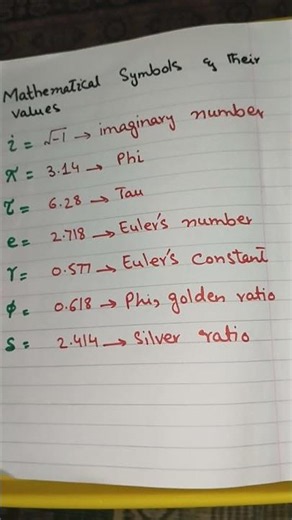 Mathematical Symbols & Their
values
i = √-1 → imaginary number
π = 3.14 → Phi
τ = 6.28 → Tau
e = 2.718 → Euler's number
γ = 0.577 → Euler's Constant
φ = 0.618 → Phi, golden ratio
S = 2.414 → Silver ratio